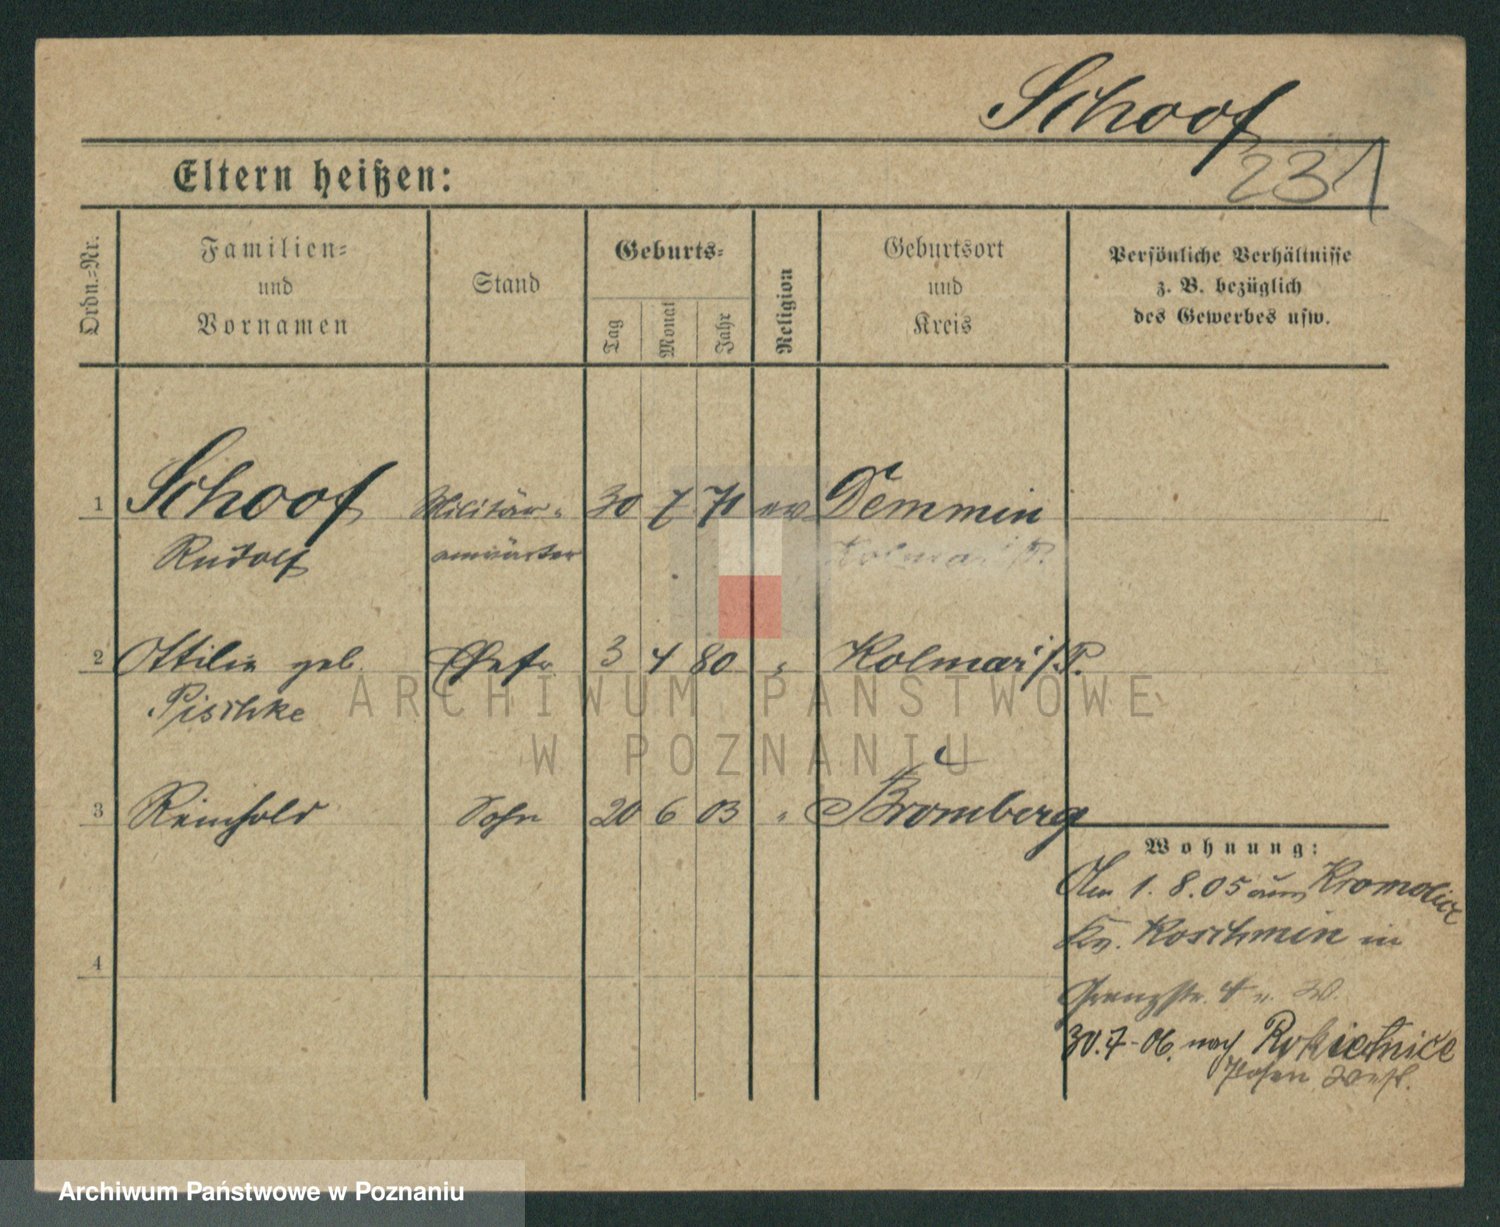 Schoof
231
Eltern heißen:
Ordn.-Nr.
Familien-
und
Vornamen
Stand
Geburts-
Tag
Monat
Jahr
Religion
Geburtsort
und
Kreis
Persönliche Verhältnisse
z. B. bezüglich
des Gewerbes usw.
1 Schoof Militär- 30 7 71 ev Demmin
Rudolf anwärter Kolmar i/P.
2 Ottilie geb. Ehefr 3 4 80 " Kolmar i/P.
Pischke
ARCHIWUM PAŃSTWOWE
W POZNANIU
3 Reinhold Sohn 20 6 03 " Bromberg
Wohnung:
Am 1. 8. 05 aus Kromolice
Kr. Koschmin in
4
Grenzstr. 4 v. W.
30.7-06. nach Rokietnice
Posen West.
Archiwum Państwowe w Poznaniu